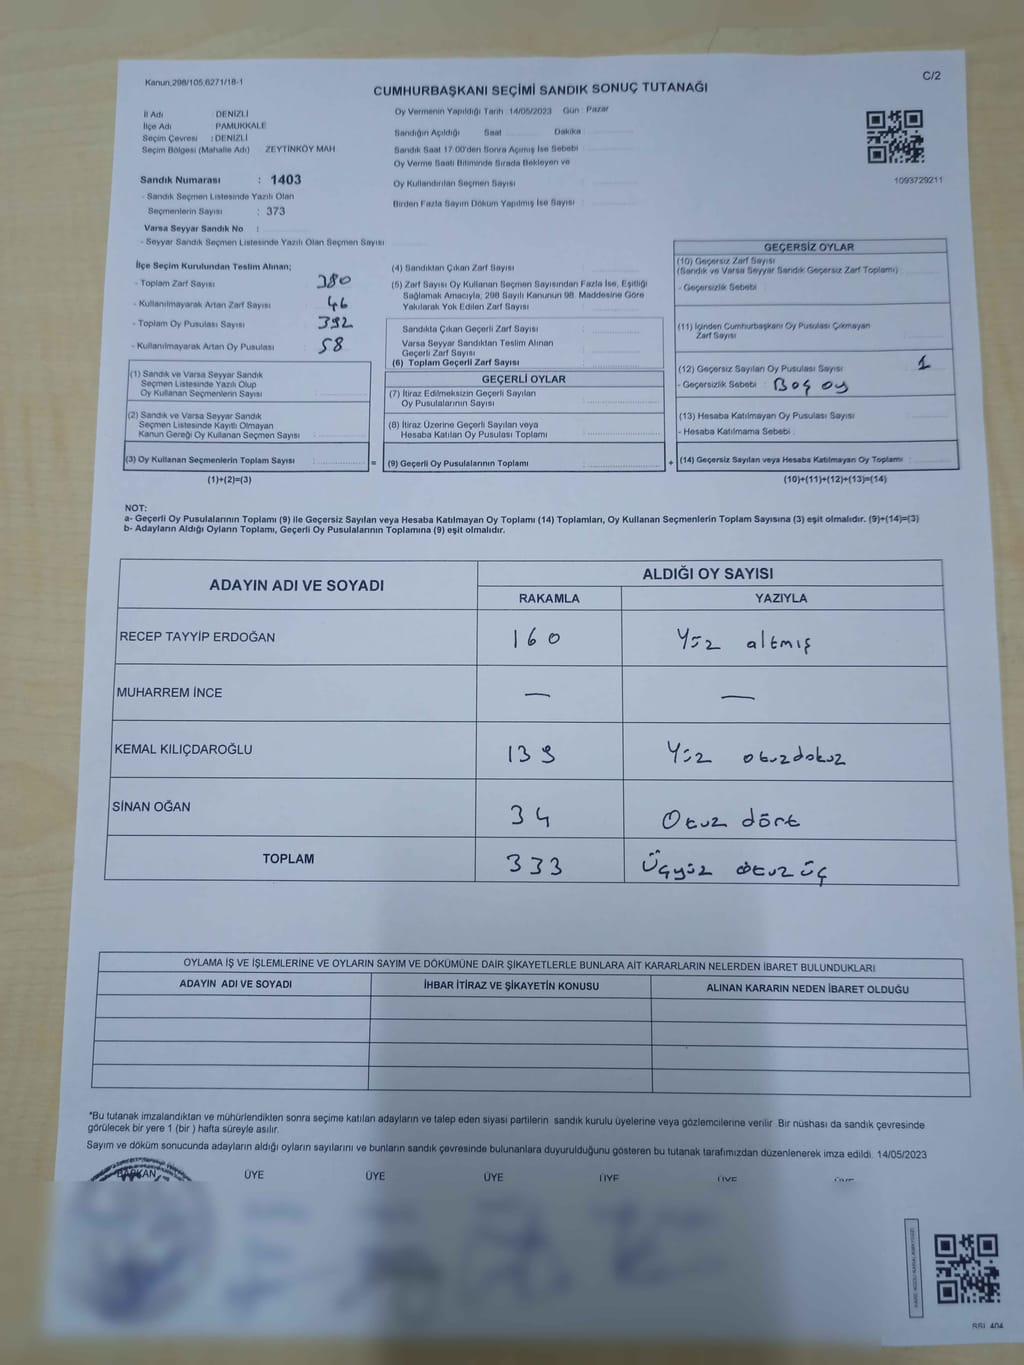 Kanun,298/105,6271/18-1
C/2
CUMHURBAŞKANI SEÇİMİ SANDIK SONUÇ TUTANAĞI
İl Adı DENİZLİ
İlçe Adı PAMUKKALE
Seçim Çevresi : DENİZLİ
Seçim Bölgesi (Mahalle Adı) ZEYTİNKÖY MAH
Sandık Numarası : 1403
- Sandık Seçmen Listesinde Yazılı Olan
Seçmenlerin Sayısı : 373
Varsa Seyyar Sandık No :
- Seyyar Sandık Seçmen Listesinde Yazılı Olan Seçmen Sayısı
Oy Vermenin Yapıldığı Tarih : 14/05/2023 Gün : Pazar
Sandığın Açıldığı Saat Dakika
Sandık Saat 17:00'den Sonra Açımış İse Sebebi
Oy Verme Saati Bitiminde Sırada Bekleyen ve
Oy Kullandırılan Seçmen Sayısı
Birden Fazla Sayım Döküm Yapılmış İse Sayısı
1093729211
İlçe Seçim Kurulundan Teslim Alınan;
- Toplam Zarf Sayısı 380
- Kullanılmayarak Artan Zarf Sayısı 46
- Toplam Oy Pusulası Sayısı 392
- Kullanılmayarak Artan Oy Pusulası 58
(1) Sandık ve Varsa Seyyar Sandık
Seçmen Listesinde Yazılı Olup
Oy Kullanan Seçmenlerin Sayısı
(2) Sandık ve Varsa Seyyar Sandık
Seçmen Listesinde Kayıtlı Olmayan
Kanun Gereği Oy Kullanan Seçmen Sayısı
(3) Oy Kullanan Seçmenlerin Toplam Sayısı :
(1)+(2)=(3)
(4) Sandıktan Çıkan Zarf Sayısı
(5) Zarf Sayısı Oy Kullanan Seçmen Sayısından Fazla İse, Eşitliği
Sağlamak Amacıyla, 298 Sayılı Kanunun 98. Maddesine Göre
Yakılarak Yok Edilen Zarf Sayısı
Sandıkta Çıkan Geçerli Zarf Sayısı
Varsa Seyyar Sandıktan Teslim Alınan
Geçerli Zarf Sayısı
(6) Toplam Geçerli Zarf Sayısı
GEÇERLİ OYLAR
(7) İtiraz Edilmeksizin Geçerli Sayılan
Oy Pusulalarının Sayısı
(8) İtiraz Üzerine Geçerli Sayılan veya
Hesaba Katılan Oy Pusulası Toplamı
= (9) Geçerli Oy Pusulalarının Toplamı
GEÇERSİZ OYLAR
(10) Geçersiz Zarf Sayısı
(Sandık ve Varsa Seyyar Sandık Geçersiz Zarf Toplamı)
- Geçersizlik Sebebi :
(11) İçinden Cumhurbaşkanı Oy Pusulası Çıkmayan
Zarf Sayısı
(12) Geçersiz Sayılan Oy Pusulası Sayısı 1
- Geçersizlik Sebebi : Boş oy
(13) Hesaba Katılmayan Oy Pusulası Sayısı
- Hesaba Katılmama Sebebi
+ (14) Geçersiz Sayılan veya Hesaba Katılmayan Oy Toplamı
(10)+(11)+(12)+(13)=(14)
NOT:
a- Geçerli Oy Pusulalarının Toplamı (9) ile Geçersiz Sayılan veya Hesaba Katılmayan Oy Toplamı (14) Toplamları, Oy Kullanan Seçmenlerin Toplam Sayısına (3) eşit olmalıdır. (9)+(14)=(3)
b- Adayların Aldığı Oyların Toplamı, Geçerli Oy Pusulalarının Toplamına (9) eşit olmalıdır.
ADAYIN ADI VE SOYADI ALDIĞI OY SAYISI
RAKAMLA YAZIYLA
RECEP TAYYİP ERDOĞAN 160 Yüz altmış
MUHARREM İNCE — —
KEMAL KILIÇDAROĞLU 139 Yüz otuzdokuz
SİNAN OĞAN 34 Otuz dört
TOPLAM 333 Üçyüz otuz üç
OYLAMA İŞ VE İŞLEMLERİNE VE OYLARIN SAYIM VE DÖKÜMÜNE DAİR ŞİKAYETLERLE BUNLARA AİT KARARLARIN NELERDEN İBARET BULUNDUKLARI
ADAYIN ADI VE SOYADI İHBAR İTİRAZ VE ŞİKAYETİN KONUSU ALINAN KARARIN NEDEN İBARET OLDUĞU
*Bu tutanak imzalandıktan ve mühürlendikten sonra seçime katılan adayların ve talep eden siyasi partilerin sandık kurulu üyelerine veya gözlemcilerine verilir. Bir nüshası da sandık çevresinde
görülecek bir yere 1 (bir ) hafta süreyle asılır.
Sayım ve döküm sonucunda adayların aldığı oyların sayılarını ve bunların sandık çevresinde bulunanlara duyurulduğunu gösteren bu tutanak tarafımızdan düzenlenerek imza edildi. 14/05/2023
BAŞKAN ÜYE ÜYE ÜYE ÜYE ÜYE ÜYE